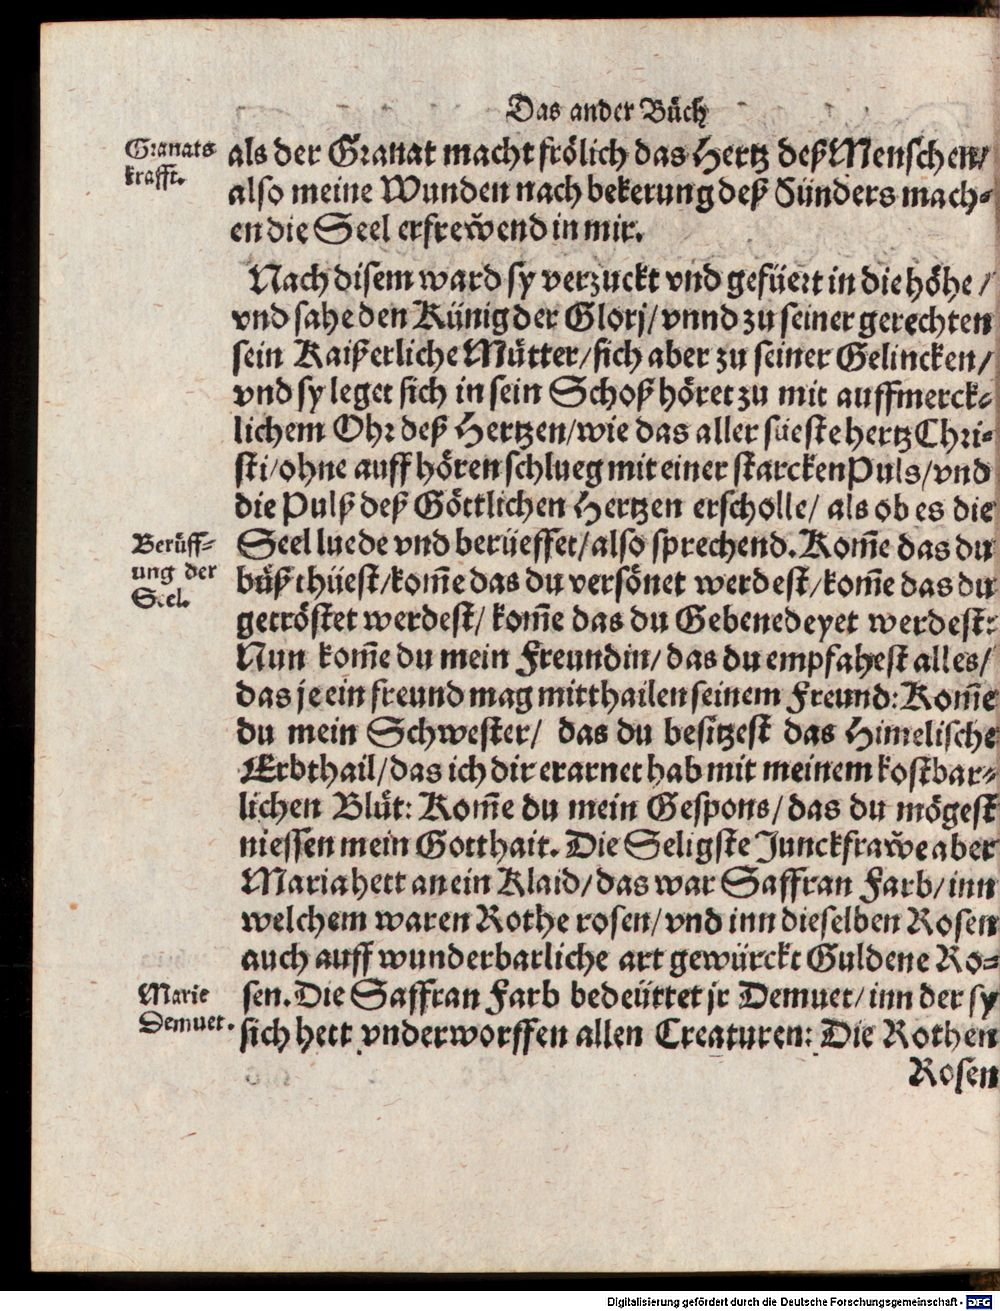 Das ander Bůch
Granats
krafft.
als der Granat macht frölich das Hertz deß Menschen/
also meine Wunden nach bekerung deß Sünders mach-
en die Seel erfrew̆end in mir.
Nach disem ward sy verzuckt vnd gefüert in die höhe /
vnd sahe den Künig der Glorj/ vnnd zu seiner gerechten
sein Kaißerliche Můtter/ sich aber zu seiner Gelincken/
vnd sy leget sich in sein Schoß höret zu mit auffmerck-
lichem Ohr deß Hertzen/ wie das aller süeste hertz Chri-
sti/ ohne auff hören schlueg mit einer starcken Puls/ vnd
die Pulß deß Göttlichen Hertzen erscholle/ als ob es die
Berůff-
ung der
Seel.
Seel luede vnd berüeffet/ also sprechend. Kom̃e das du
bůß thüest/ kom̃e das du versönet werdest/ kom̃e das du
getröstet werdest/ kom̃e das du Gebenedeyet werdest:
Nun kom̃e du mein Freundin/ das du empfahest alles/
das je ein freund mag mitthailen seinem Freund: Kom̃e
du mein Schwester/ das du besitzest das Himelische
Erbthail/ das ich dir erarnet hab mit meinem kostbar-
lichen Blůt: Kom̃e du mein Gespons/ das du mögest
niessen mein Gotthait. Die Seligste Junckfraw̆e aber
Maria hett an ein Klaid/ das war Saffran Farb/ inn
welchem waren Rothe rosen/ vnd inn dieselben Rosen
auch auff wunderbarliche art gewürckt Guldene Ro-
Marie
Demuet.
sen. Die Saffran Farb bedeüttet jr Demuet/ inn der sy
sich hett vnderworffen allen Creaturen: Die Rothen
Rosen
Digitalisierung gefördert durch die Deutsche Forschungsgemeinschaft - DFG